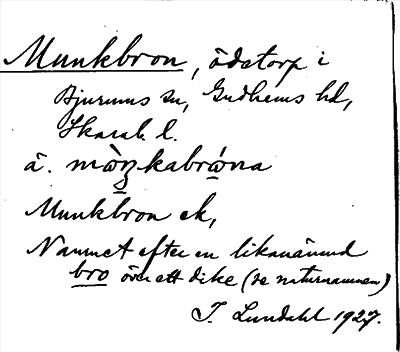 Munkbron, ödetorp i
Bjurums sn, Gudhems hd,
Skarab. l.
å. mòŋkabrωna
Munkbron ek,
Namnet efter en likanämnd
bro över ett dike (se naturnamnen)
I. Lundahl 1927.